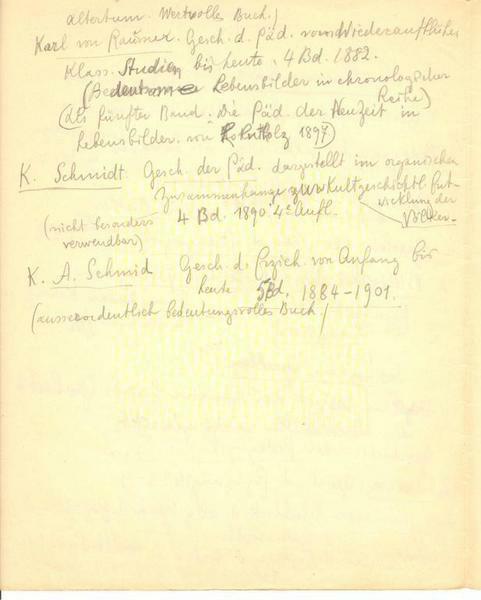 altertum. Wertvolles Buch./
Karl von Raumer. Gesch. d. Päd. vom Wiederaufblühen
Klass. Studien bis heute. 4 Bd. 1882.
(Bedeutsame Lebensbilder in chronologischer
Reihe)
(Als fünfter Band: Die Päd. der Neuzeit in
Lebensbilder. von 1897)
K. Schmidt. Gesch. der Päd. dargestellt im organischen
Zusammenhange zur Kultgeschichtl. Ent-
wicklung der
Völker.
(nicht besonders 4 Bd. 1890. 4e Aufl.
verwendbar)
K. A. Schmid Gesch. d. Erzieh. von Anfang bis
heute 5 Bd. 1884-1901.
(ausserordentlich bedeutungsvolles Buch./